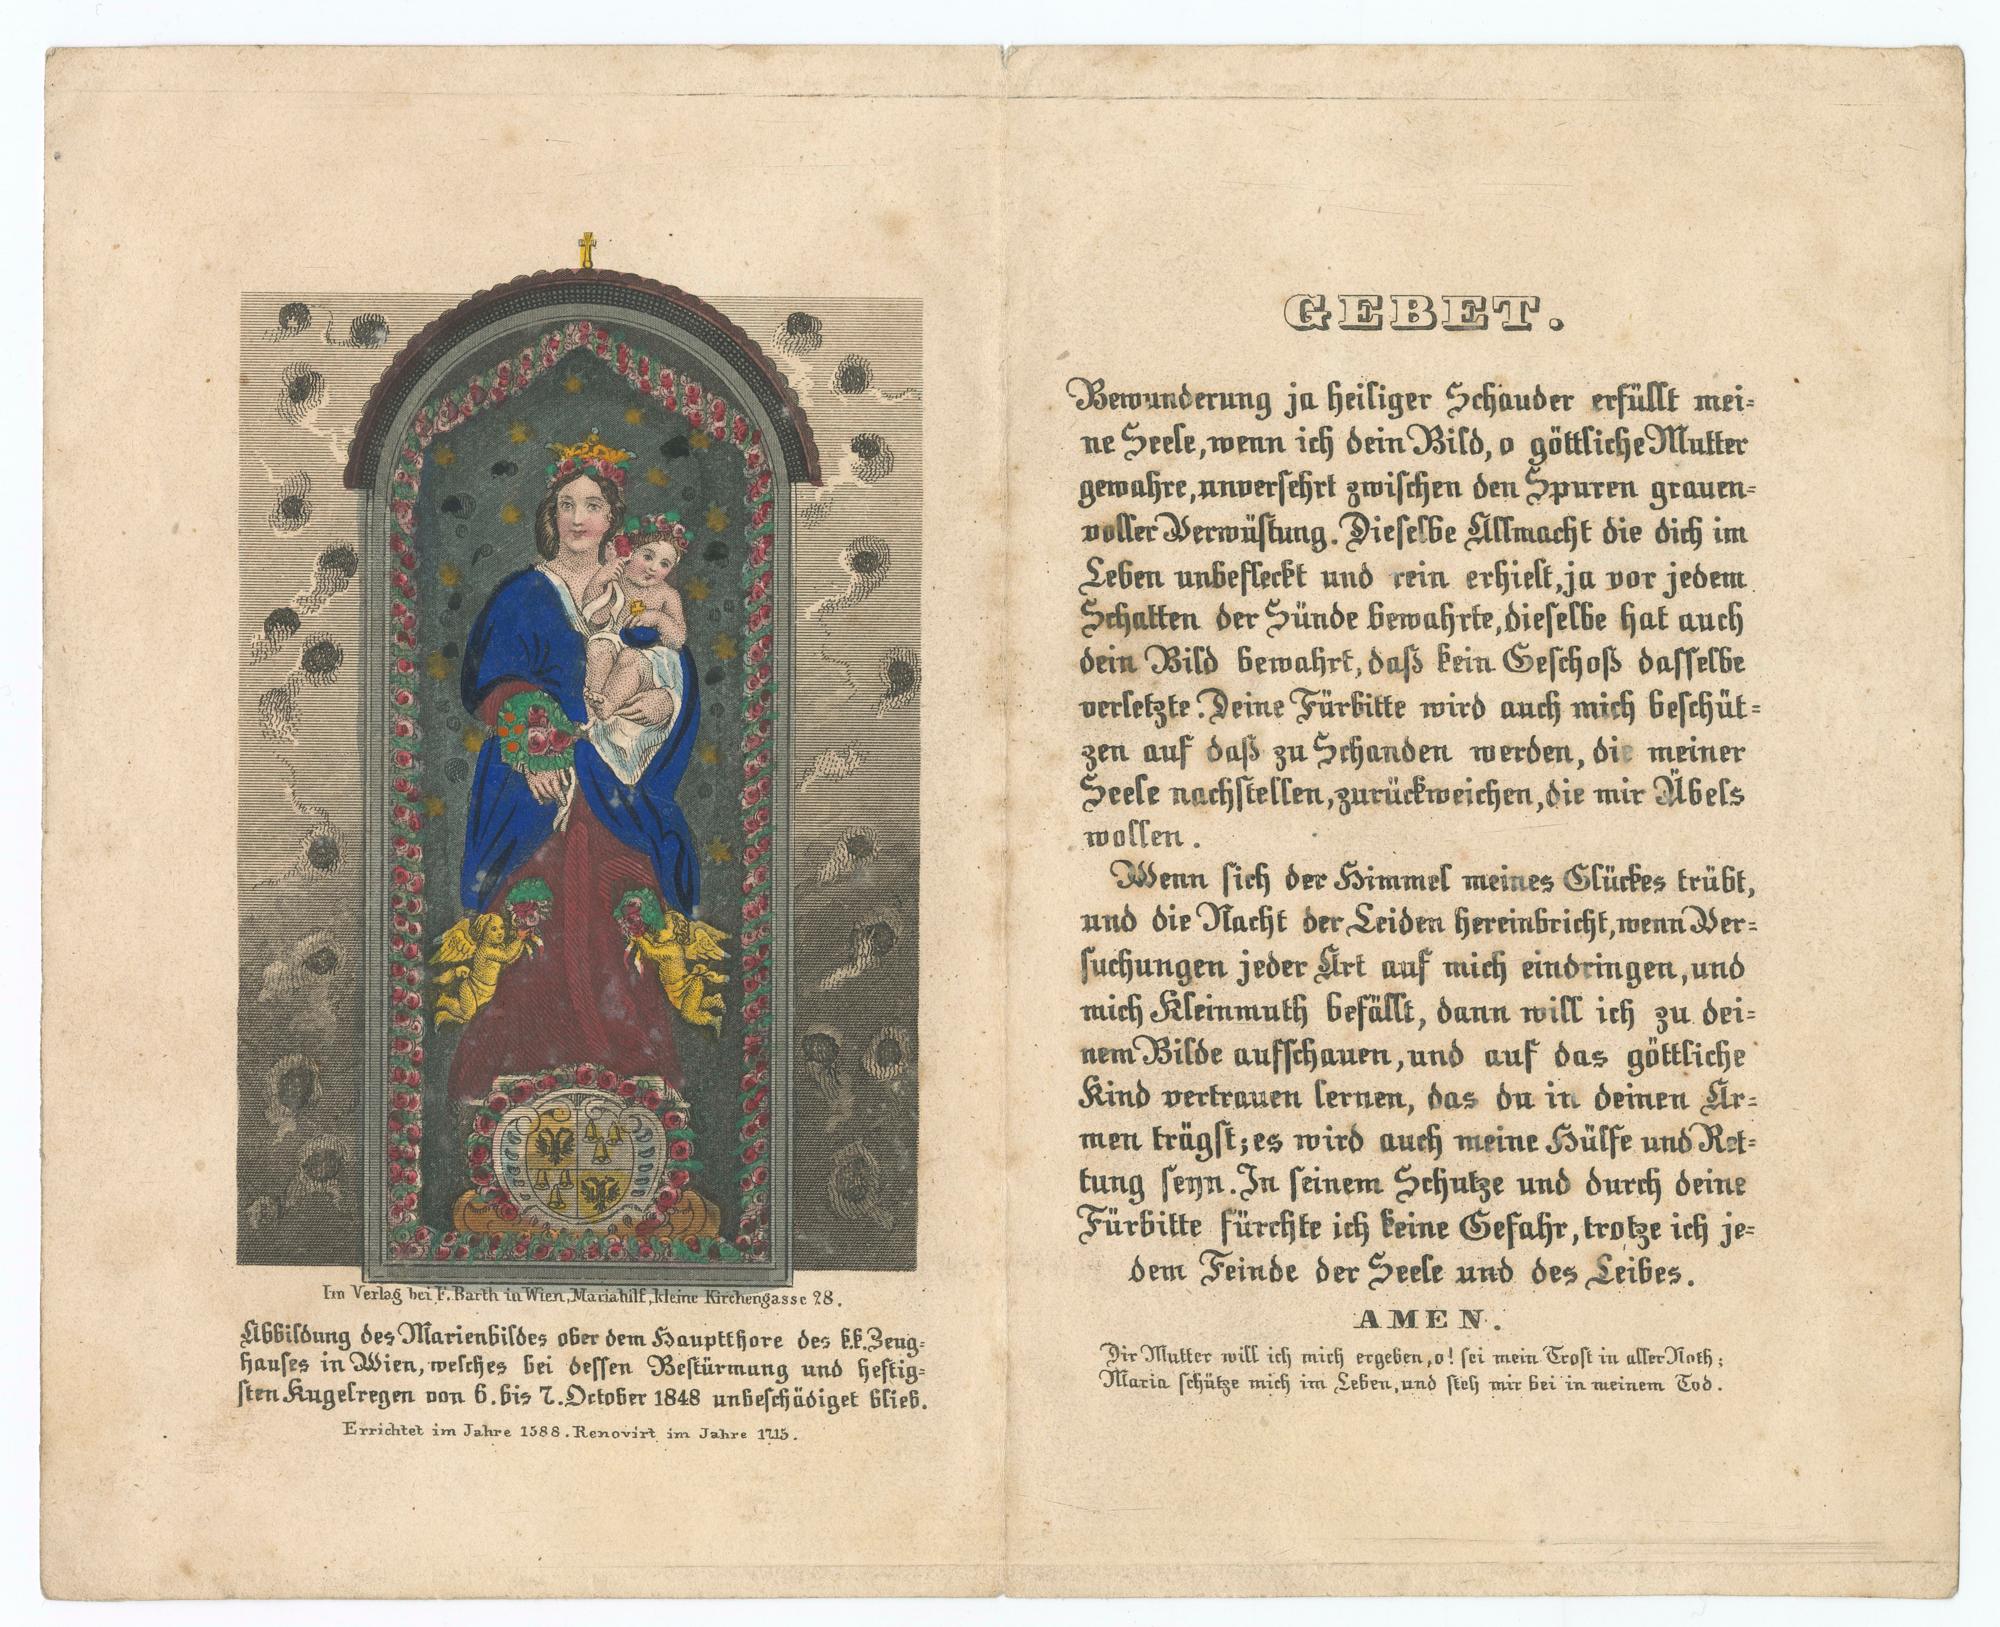 Im Verlag bei F. Barth in Wien, Mariahilf, kleine Kirchengasse 28.
Abbildung des Marienbildes ober dem Hauptthore des k.k. Zeug=
hauses in Wien, welches bei dessen Bestürmung und heftig=
sten Kugelregen von 6. bis 7. October 1848 unbeschädiget blieb.
Errichtet im Jahre 1588. Renovirt im Jahre 1715.
GEBET.
Bewunderung ja heiliger Schauder erfüllt mei=
ne Seele, wenn ich dein Bild, o göttliche Mutter
gewahre, unversehrt zwischen den Spuren grauen=
voller Verwüstung. Dieselbe Allmacht die dich im
Leben unbefleckt und rein erhielt, ja vor jedem
Schatten der Sünde bewahrte, dieselbe hat auch
dein Bild bewahrt, daß kein Geschoß dasselbe
verletzte. Deine Fürbitte wird auch mich beschüt=
zen auf daß zu Schanden werden, die meiner
Seele nachstellen, zurückweichen, die mir Übels
wollen.
Wenn sich der Himmel meines Glückes trübt,
und die Nacht der Leiden hereinbricht, wenn Ver=
suchungen jeder Art auf mich eindringen, und
mich Kleinmuth befällt, dann will ich zu dei=
nem Bilde aufschauen, und auf das göttliche
Kind vertrauen lernen, das du in deinen Ar=
men trägst; es wird auch meine Hülfe und Ret=
tung seyn. In seinem Schutze und durch deine
Fürbitte fürchte ich keine Gefahr, trotze ich je=
dem Feinde der Seele und des Leibes.
AMEN.
Dir Mutter will ich mich ergeben, o! sei mein Trost in aller Noth;
Maria schütze mich im Leben, und steh mir bei in meinem Tod.